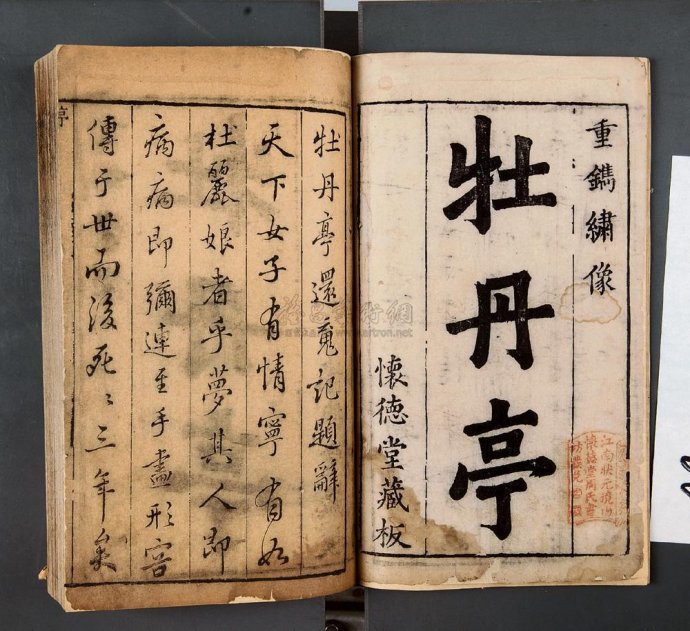 重鐫繡像
牡丹亭
懷德堂藏板
江南狀元境內
懷德堂周氏書
牡丹亭還魂記題辭
天下女子有情寧有如
杜麗娘者乎夢其人即
病病即彌連至手畫形容
傳于世而後死〻三年矣
亭